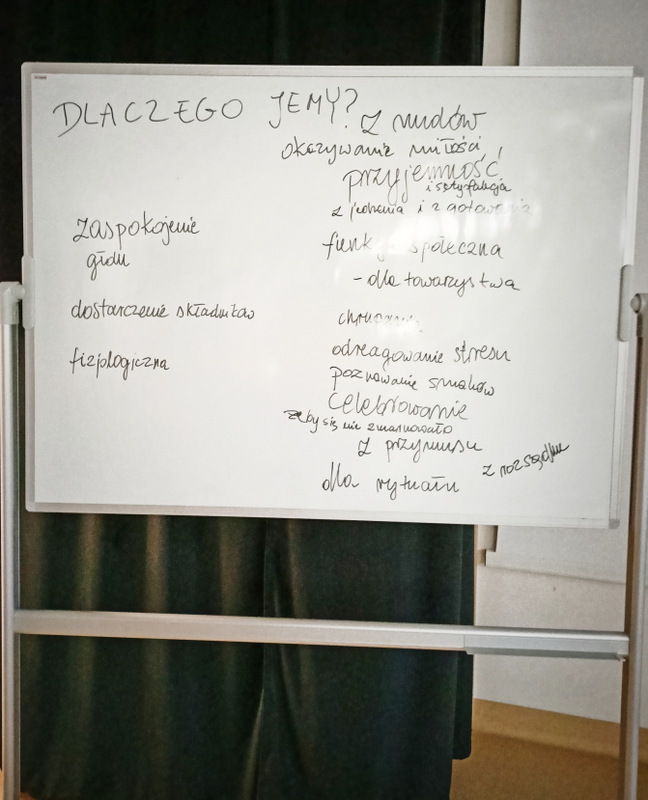 DLACZEGO JEMY?
zaspokojenie
głodu
dostarczenie składników
fizjologiczna
Z nudów
okazywanie miłości
przyjemność
i satysfakcja
z jedzenia i z gotowania
funkcja społeczna
- dla towarzystwa
odreagowanie stresu
poznawanie smaków
celebrowanie
żeby się nie zmarnowało
z przymusu
z rozsądku
dla rytuału